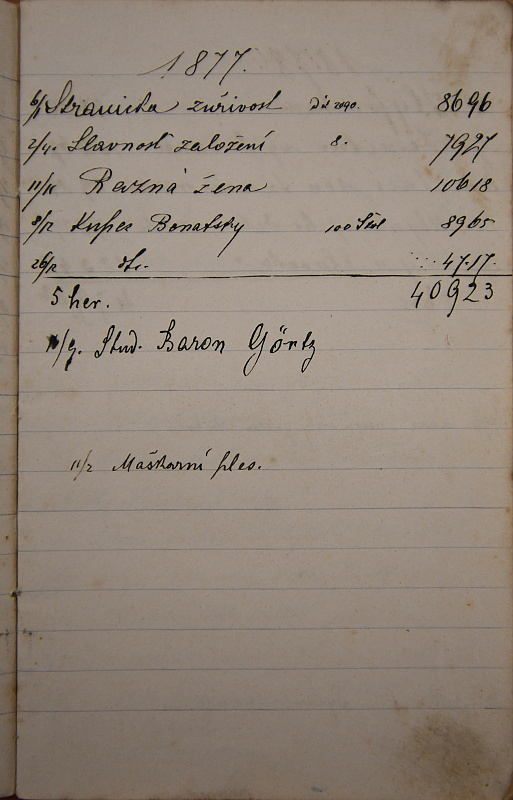 1877.
6/1 Stranická zuřivost 8696
2/4. Slavnosť založení 8. 7927
11/11 Řezná žena 10618
8/12 Kupec Benatsky 100 8965
26/12 dto. 47.17.
5 her. 40923
1/9. Stud. Baron Görtz
11/2 Maškarní ples.